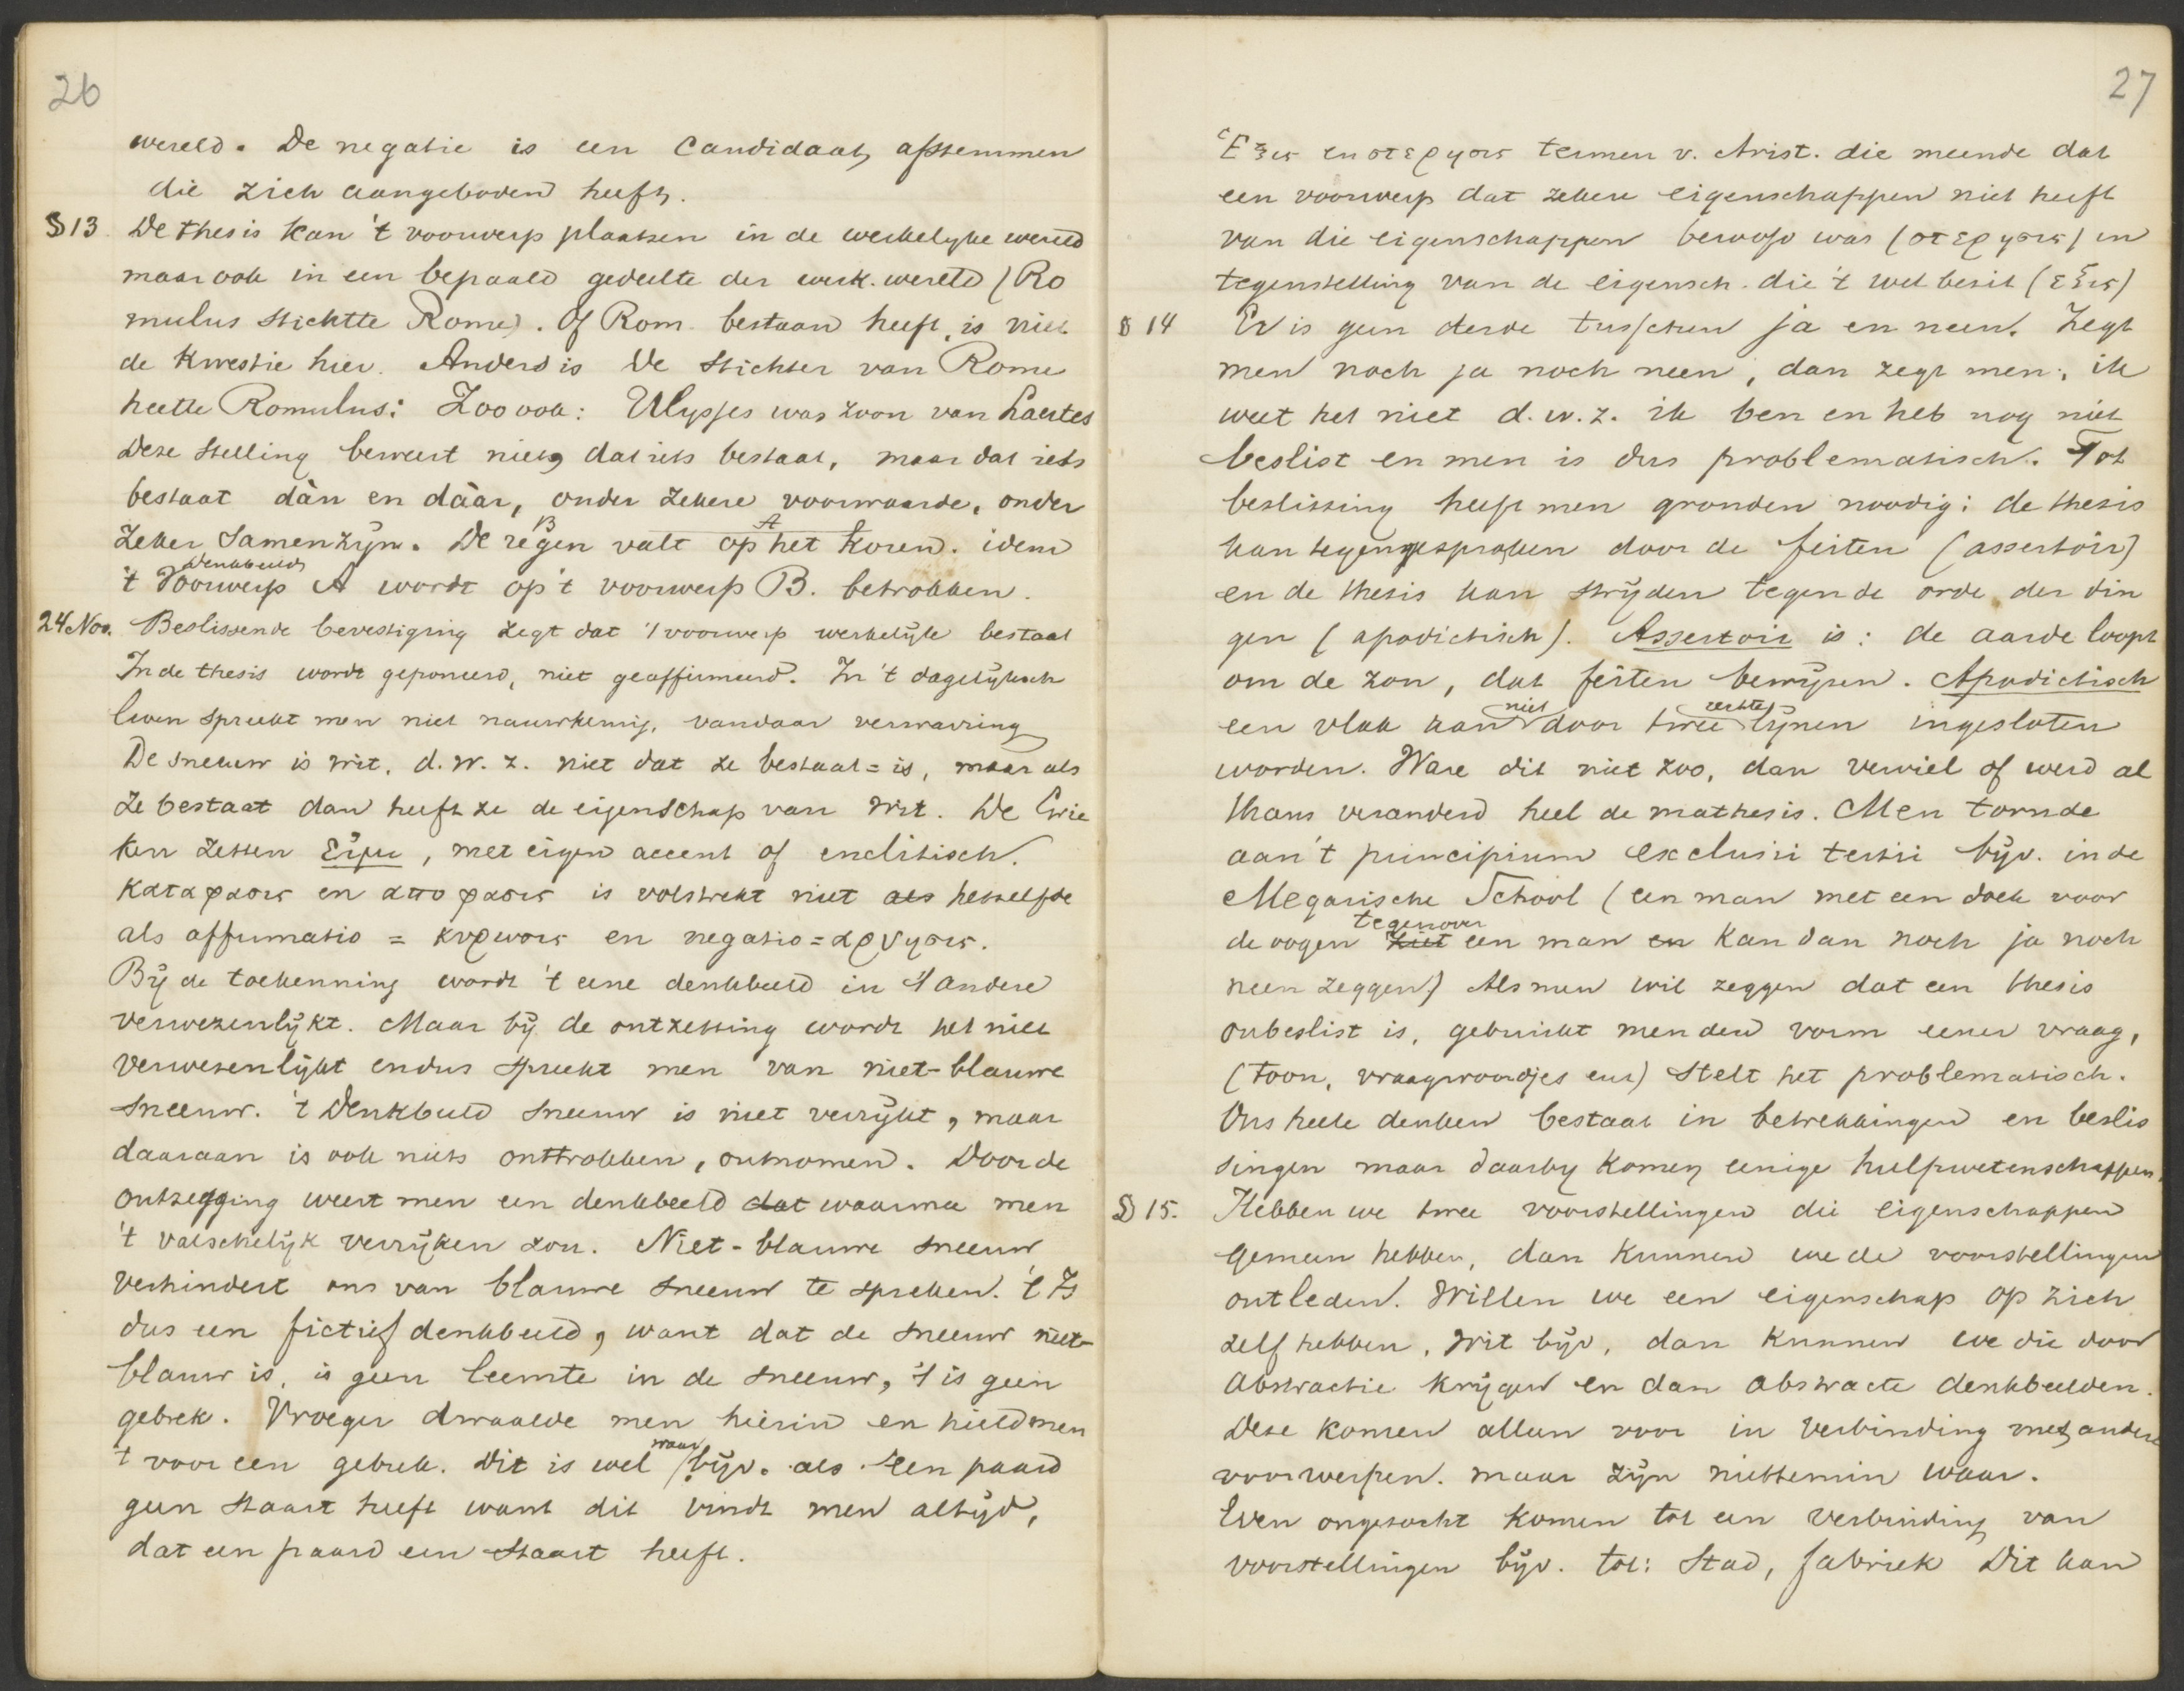 26
wereld. De negatie is een Candidaat afstemmen
die zich aangeboden heeft.
§ 13. De thesis kan 't voorwerp plaatsen in de werkelyke wereld
maar ook in een bepaald gedeelte der werk. wereld (Ro
mulus stichtte Rome). Of Rom. bestaan heeft, is niet
de kwestie hier. Anders is De stichter van Rome
heette Romulus: Zoo ook: Ulysses was zoon van Laertes
Deze stelling beweert niet, dat iets bestaat, maar dat iets
bestaat dàn en dààr, onder zekere voorwaarde, onder
B A
zeker samenzijn. De regen valt op het koren. idem
denkbeeld
't Voorwerp A wordt op 't voorwerp B. betrokken.
24 Nov. Beslissende bevestiging zegt dat 't voorwerp werkelijk bestaat
In de thesis wordt geponeerd, niet geaffirmeerd. In 't dagelijksch
leven spreekt men niet nauwkeurig, vandaar verwarring
De sneeuw is wit, d.w.z. niet dat ze bestaat = is, maar als
ze bestaat dan heeft ze de eigenschap van wit. De Grie
ken zetten εἰμι, met eigen accent of enclitisch.
καταφασις en αποφασις is volstrekt niet als hetzelfde
als affirmatio = κυρωσις en negatio = αρνησις.
Bij de toekenning wordt 't eene denkbeeld in 't andere
verwezenlijkt. Maar bij de ontzetting wordt het niet
verwesenlijkt en dus spreekt men van niet-blauwe
sneeuw. 't Denkbeeld sneeuw is niet verrijkt, maar
daaraan is ook niets onttrokken, ontnomen. Door de
ontzegging weert men een denkbeeld dat waarmee men
't valschelijk verrijken zou. Niet-blauwe sneeuw
verhindert ons van blauwe sneeuw te spreken. 't Is
dus een fictief denkbeeld, want dat de sneeuw niet-
blauw is, is geen leemte in de sneeuw, 't is geen
gebrek. Vroeger dwaalde men hierin en hield men
waar
't voor een gebrek. Dit is wel bijv. als een paard
geen staart heeft want dit vindt men altijd,
dat een paard een staart heeft.
27
Ἑξις en στερησις termen v. Arist. die meende dat
een voorwerp dat zekere eigenschappen niet heeft
van die eigenschappen beroofd was (στερησις) in
tegenstelling van de eigensch. die 't wel bezit (εξις)
§ 14 Er is geen derde tusschen ja en neen. Zegt
men noch ja noch neen, dan zegt men: ik
weet het niet d.w.z. ik ben en heb nog niet
beslist en men is dus problematisch. Tot
beslissing heeft men gronden noodig: de thesis
kan tegengesproken door de feiten (assertoir)
en de thesis kan strijden tegen de orde der din
gen (apodictisch). Assertoir is: de aarde loopt
om de zon, dat feiten bewijzen. Apodictisch
niet rechte
een vlak kan door twee lijnen ingesloten
worden. Ware dit niet zoo, dan verviel of werd al
thans veranderd heel de mathesis. Men tornde
aan 't principium exclusi tertii bijv. in de
Megarische School (een man met een doek voor
tegenover
de oogen ziet een man en kan dan noch ja noch
neen zeggen) Als men wil zeggen dat een thesis
onbeslist is, gebruikt men den vorm eener vraag,
(toon, vraagwoordjes enz) stelt het problematisch.
Ons heele denken bestaat in betrekkingen en beslis
singen maar daarby komen eenige hulpwetenschappen.
§ 15. Hebben we twee voorstellingen die eigenschappen
gemeen hebben, dan kunnen we de voorstellingen
ontleden. Willen we een eigenschap op zich
zelf hebben, wit bijv, dan kunnen we die door
abstractie krijgen en dan abstracte denkbeelden.
Deze komen alleen voor in verbinding met andere
voorwerpen. maar zijn niettemin waar.
Even ongezocht komen tot een verbinding van
voorstellingen bijv. tot: Stad, fabriek Dit kan